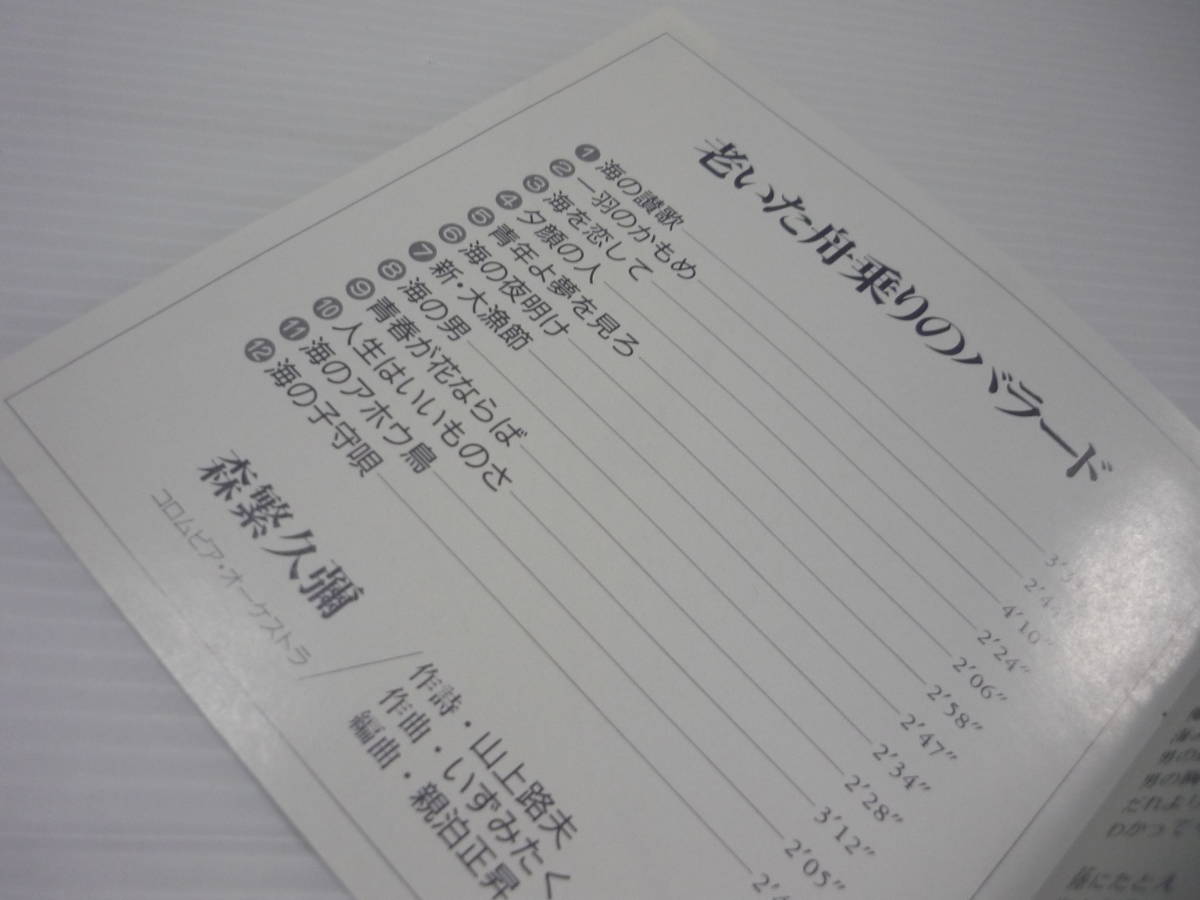 老いた舟乗りのバラード
❶ 海の讃歌
❷ 一羽のかもめ
❸ 海を恋して 4'10
❹ 夕顔の人 2'24"
❺ 青年よ夢を見ろ 2'06"
❻ 海の夜明け 2'58"
❼ 新・大漁節 2'47"
❽ 海の男 2'34"
❾ 青春が花ならば 2'28"
❿ 人生はいいものさ 3'12"
⓫ 海のアホウ鳥 2'05"
⓬ 海の子守唄
森繁久彌
コロムビア・オーケストラ
作詩・山上路夫
作曲・いずみたく
編曲・親泊正昇
男の
だれより
わかって
にたとえ